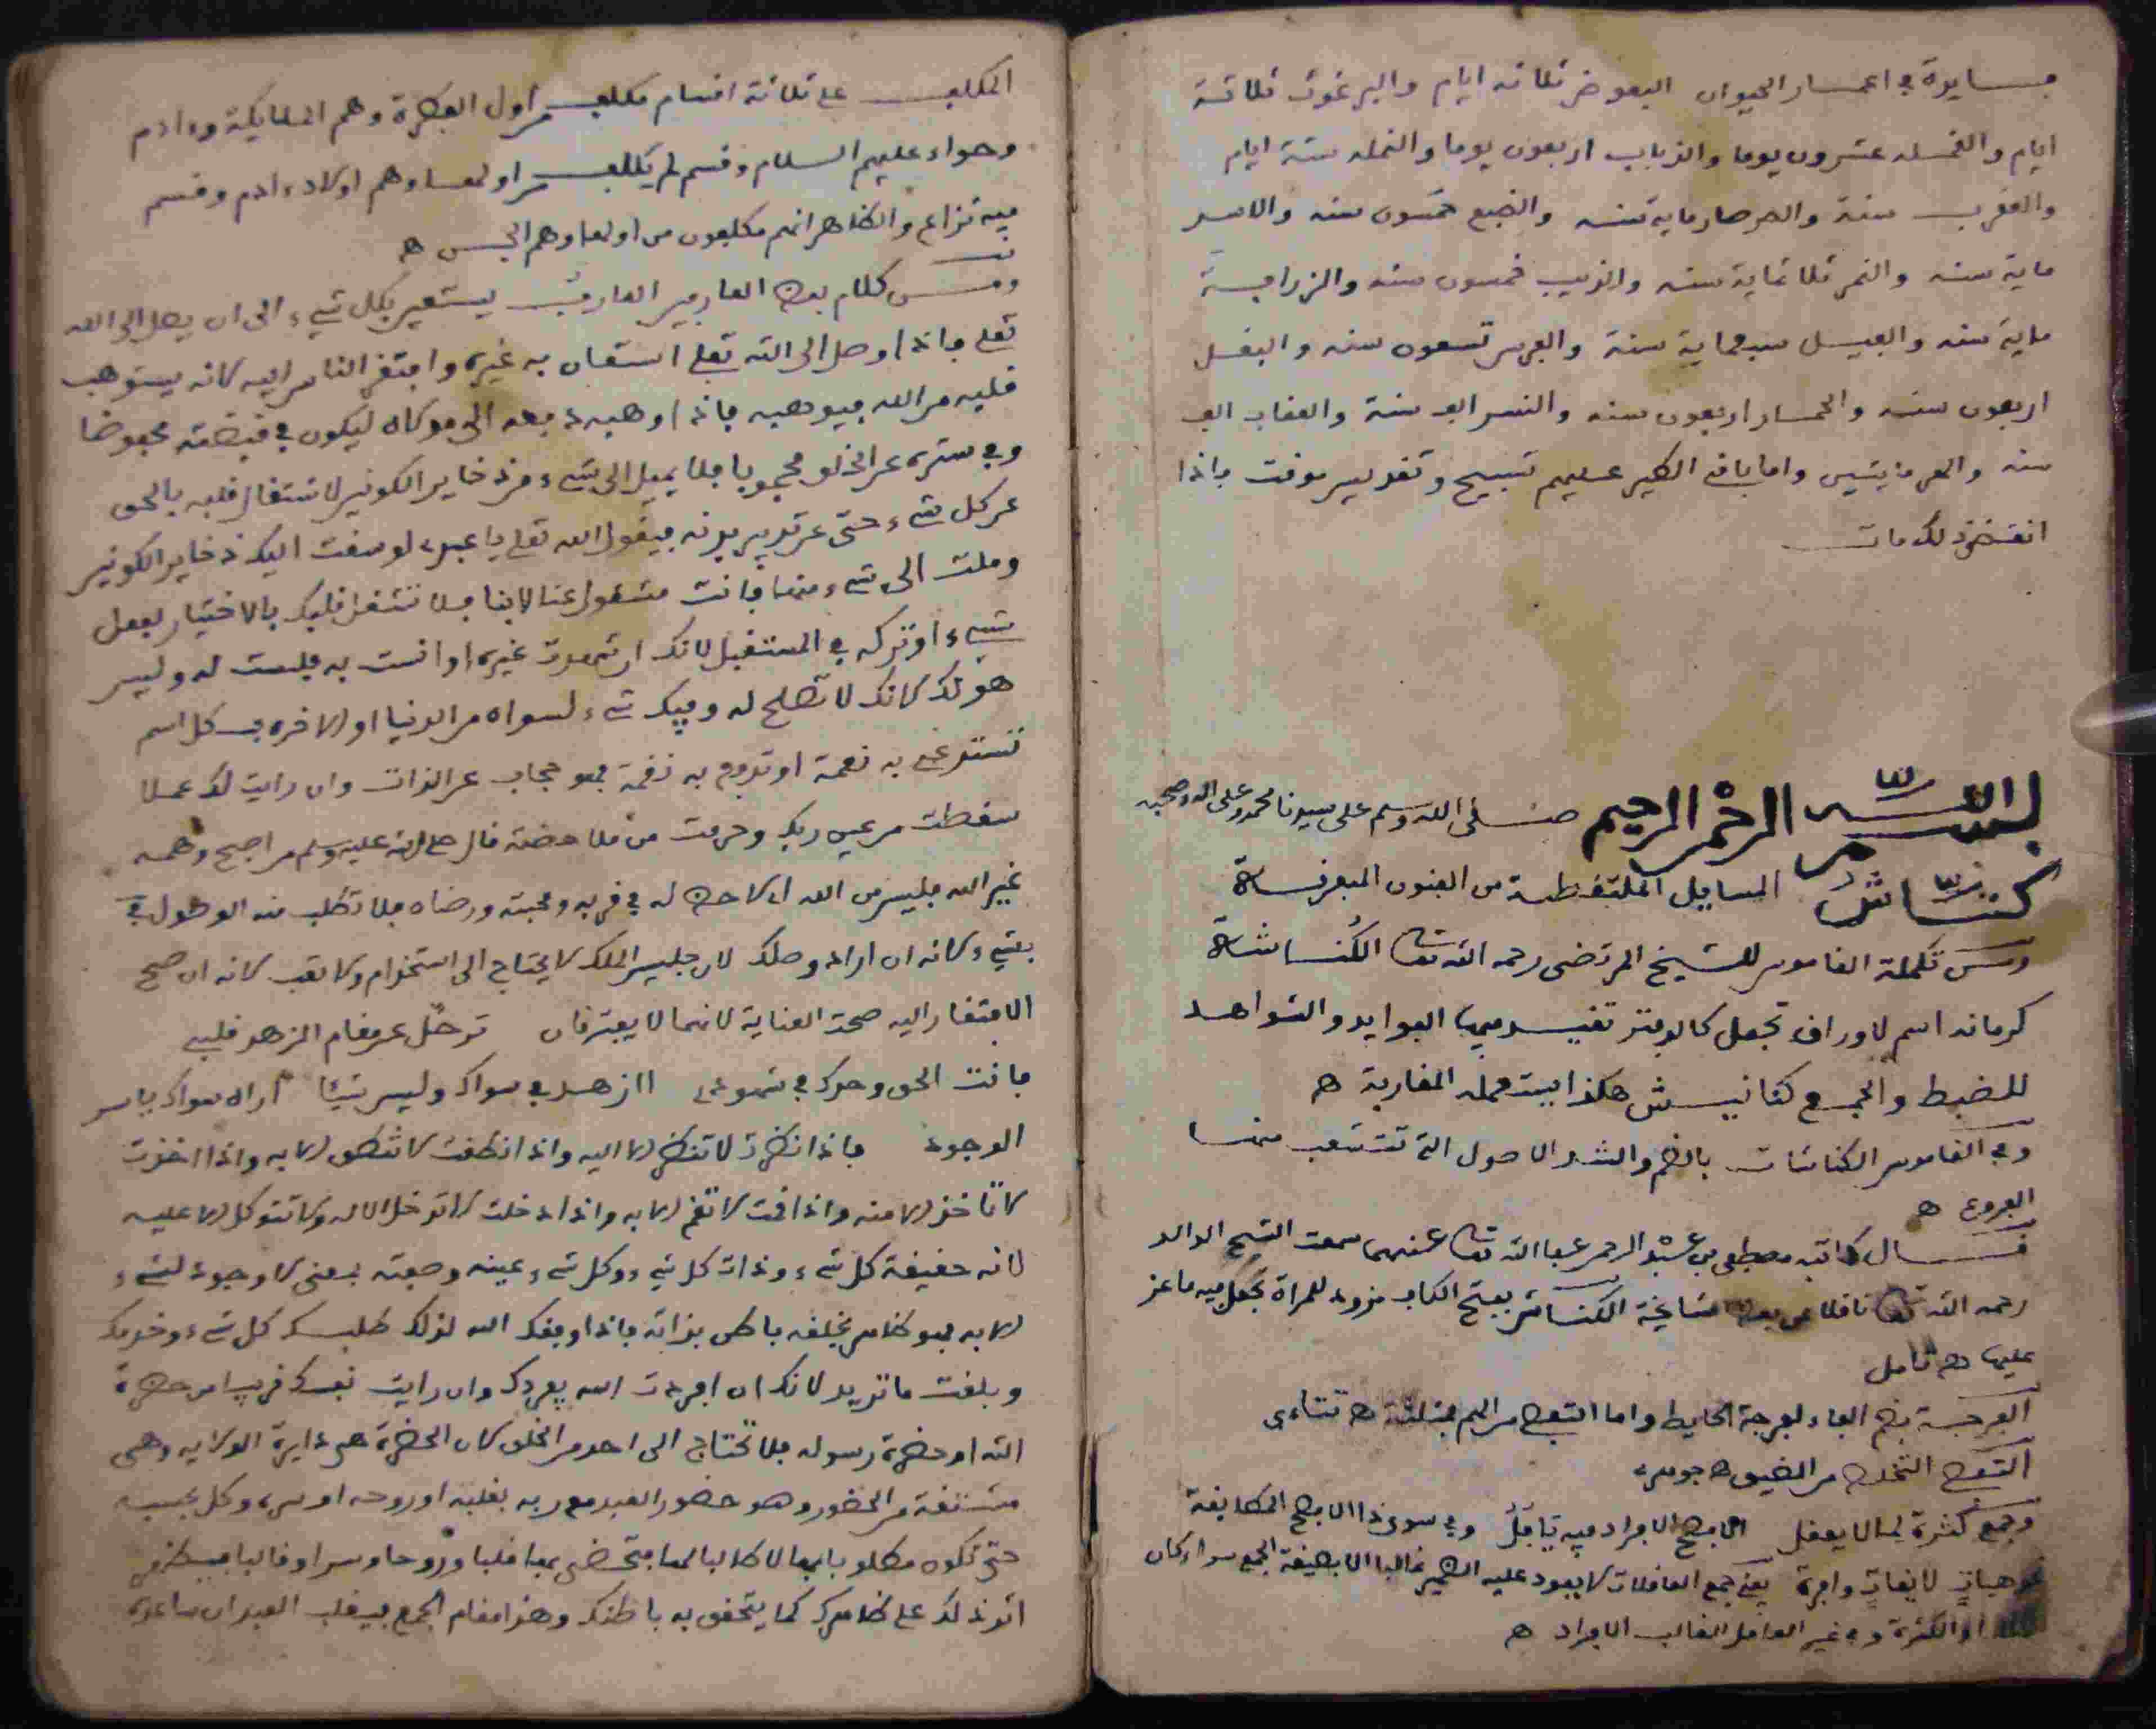 فايدة في اعمار الحيوان البعوض ثلاثه ايام والبرغوث ثلاثة
ايام والقمله عشرون يوما والذباب اربعون يوما والنمله ستة ايام
والعقرب سنة والصرصار ماية سنه والضبع خمسون سنه والاسد
ماية سنه والنمر ثلاثماية سنه والذيب خمسون سنه والزرافة
ماية سنه والفيل سبعماية سنة والفرس تسعون سنه والبغل
اربعون سنه والحمار اربعون سنه والنسر الف سنة والعقاب الف
سنه والهر مايتين واما باقي الطير عمرهم تسبيح وتقديس موقت فاذا
انقضى ذلك مات
بسم الله الرحمن الرحيم صلى الله وسلم على سيدنا محمد وعلى اله وصحبه
كناش المسايل الملتقطة من الفنون المتفرقة
ومن تكملة القاموس للشيخ المرتضى رحمه الله تعا الكُناشة
كرمانه اسم لاوراق تجعل كالدفتر تقيد فيها الفوايد والشواهد
للضبط والجمع كنانيش هكذا يستعمله المغاربة ه
وفي القاموس الكناشات بالضم والشد الاصول التي تتشعب منها
الفروع ه
قال كاتبه مصطفى بن عبد الرحمن عفا الله تعا عنهما سمعت الشيخ الوالد
رحمه الله تعا ناقلا عن بعض مشايخه الكناش بفتح الكاف مزود للمراة تجعل فيه ما عز
عليها ه تامل
الفرجة بضم الفاء لفرجة الحايط واما التفصي من الهم فمثلثة ه تتاءي
التفصي التخلص من الضيق ه جوهرى
وجمع كثرة لما لا يعقل الافصح الافراد فيه يا فُلُ وفي سوى ذا الافصح المطابقة
نحو هبات لايقات وافرة يعني جمع العاقلات لا يعود عليه الضمير غالبا الا بصيغة الجمع سواء كان
او الكثرة و غير العاقل الغالب الافراد ه
المكلف على ثلاثة اقسام مكلف من اول الفطرة وهم الملايكة وءادم
وحواء عليهم السلام وقسم لم يكلف من اولها وهم اولاد ءادم وقسم
فيه نزاع والظاهر انهم مكلفون من اولها وهم الجن ه
ومن كلام بعض العارفين العارف يستعين بكل شيء الى ان يصل الى الله
تعلى فاذا وصل الى الله تعلى استعان به غيره وافتقر الناس اليه لانه يستوهب
قلبه من الله فيوهبه فاذا وهبه دفعه الى مولاه ليكون في قبضته محفوظا
وفي ستره عن الخلق محجوبا فلا يميل الى شيء من ذخاير الكونين لاشتغال قلبه بالحق
عن كل شيء حتى عن تدبير بدنه فيقول الله تعلى يا عبدي لو سقت اليك ذخاير الكونين
وملت الى شيء منها فانت مشغول عنا لا بنا فلا تشغل قلبك بالاختيار لفعل
شيء او تركه في المستقبل لانك ان شهدت غيره او انست به فلست له وليس
هو لك لانك لا تصلح له وفيك شيء لسواه من الدنيا او الاخره فكل اسم
تستدعي به نعمة او تدفع به نقمة فهو حجاب عن الذات وان رايت لك عملا
سقطت من عين ربك وحرمت من ملاحظته قال صلى الله عليه وسلم من اصبح وهمه
غير الله فليس من الله اي لا حظ له في قربه ومحبته ورضاه فلا تطلب منه الوصول
بشيء لانه ان اراد وصلك لان جليس الملك لا يحتاج الى استخدام ولا تعب لانه ان صح
الافتقار اليه صحت العناية لانهما لا يفترقان ترحّل عن مقام الزهد قلبي
فانت الحق وحدك في شهودي اازهد في سواك وليس شيئا اراه سواك يا سر
الوجود فاذا نظرت لا تنظر الا اليه واذا نطقت لا تنطق الا به واذا اخذت
لا تاخذ الا منه واذا قمت لا تقم الا به واذا دخلت لا تدخل الا له ولا تتوكل الا عليه
لانه حقيقة كل شيء وذات كل شيء وكل شيء عينه وصفته بمعنى لا وجود لشيء
الا به فهو ظاهر بخلقه باطن بذاته فاذا وفقك الله لذلك طلبك كل شيء وخدمك
وبلغت ما تريد لانك ان افردت الله يفردك وان رايت نفسك قريبا من حضرة
الله او حضرة رسوله فلا تحتاج الى احد من الخلق لان الحضرة هي دايرة الولايه وهى
مشتقة من الحضور وهو حضور العبد مع ربه بقلبه او روحه او سره وكل بحسبه
حتى تكون مطلوبا بها لا طالبا لها فتحضى بها قلبا وروحا وسرا وقالبا فيظهر
اثر ذلك على ظاهرك كما يتحقق به باطنك وهذا مقام الجمع فيقلب العبد ان ساعدته